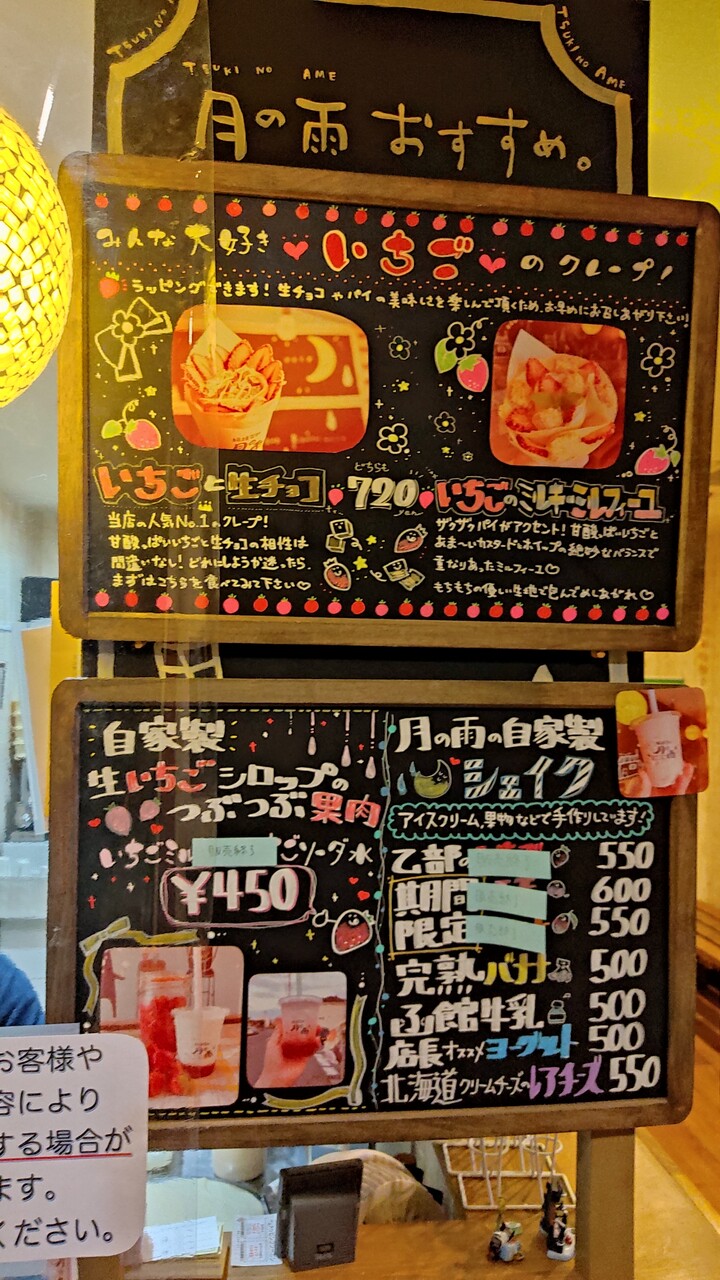 TSUKI NO
TSUKI NO AME
TSUKI NO AME
月の雨 おすすめ。
みんな大好き いちご のクレープ!
ラッピングできます!生チョコやパイの美味しさを楽しんで頂くため、お早めにお召しあがり下さい!
いちごと生チョコ
どちらも
720
yen
いちごのミルキーミルフィーユ
当店の人気No.1のクレープ!
甘酸っぱいいちごと生チョコの相性は
間違いなし!どれにしようか迷ったら
まずはこちらを食べてみて下さい♡
ザクザクパイがアクセント!甘酸っぱいいちごと
あま〜いカスタードとホイップの絶妙なバランスで
重なりあったミルフィーユ♡
もちもちの優しい生地で包んでめしあがれ♡
自家製
生いちごシロップの
つぶつぶ果肉
いちごミル
販売終了
ごソーダ
¥450
月の雨の自家製
シェイク
アイスクリーム、果物などで手作りしています!
乙部の
550
期間
600
限定
550
完熟バナナ 500
函館牛乳 500
店長オススメヨーグルト 500
北海道クリームチーズのレアチーズ 550
お客様や
容により
する場合が
ます。
ください。